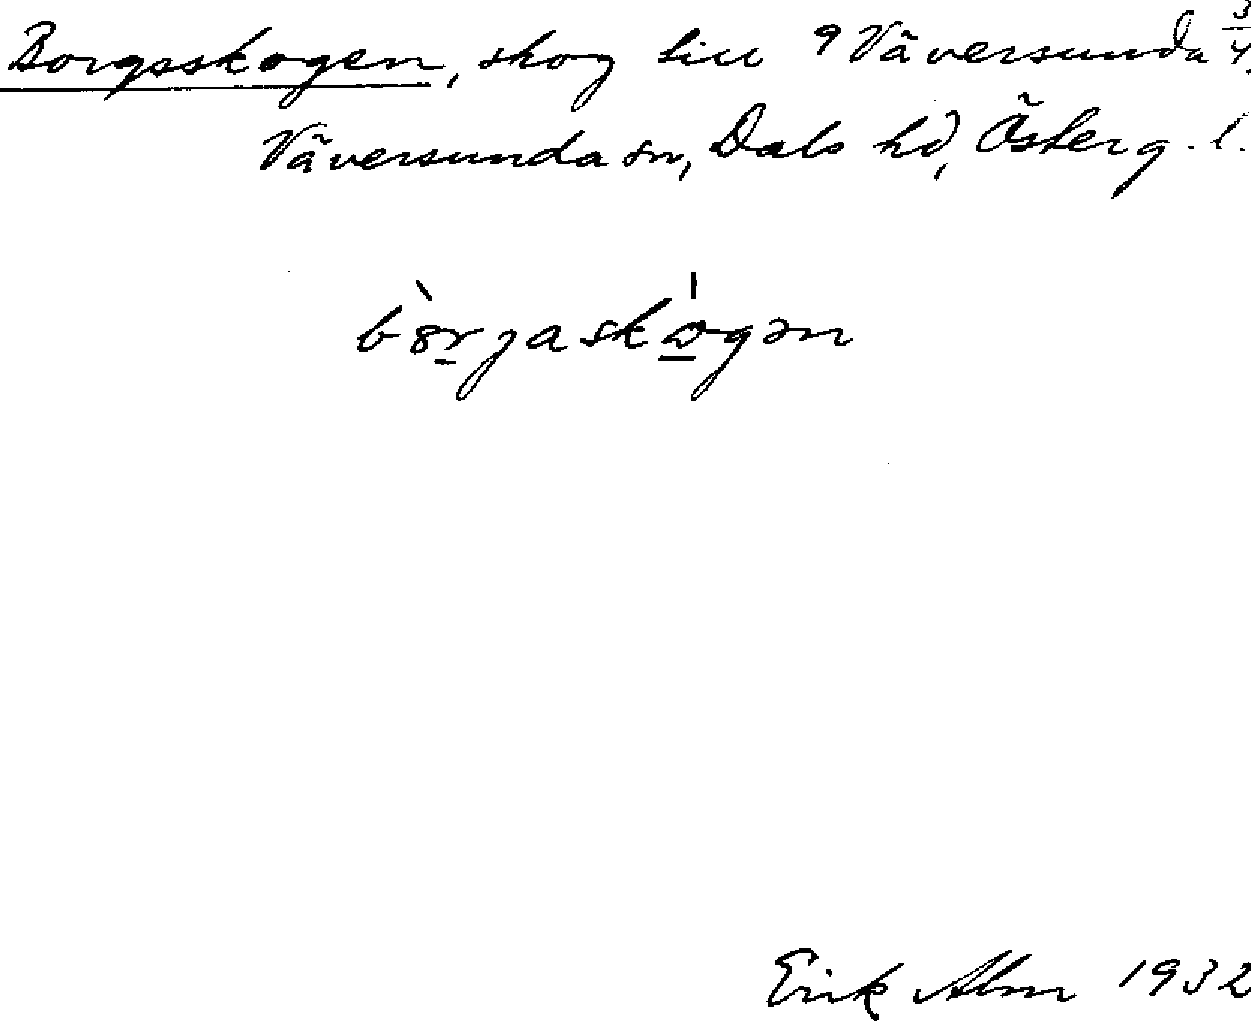 Borgsskogen, skog till 9 Väversunda 3/4,
Väversunda sn, Dals hd, Österg. l.
bòrjaskògən
Erik Alm 1932